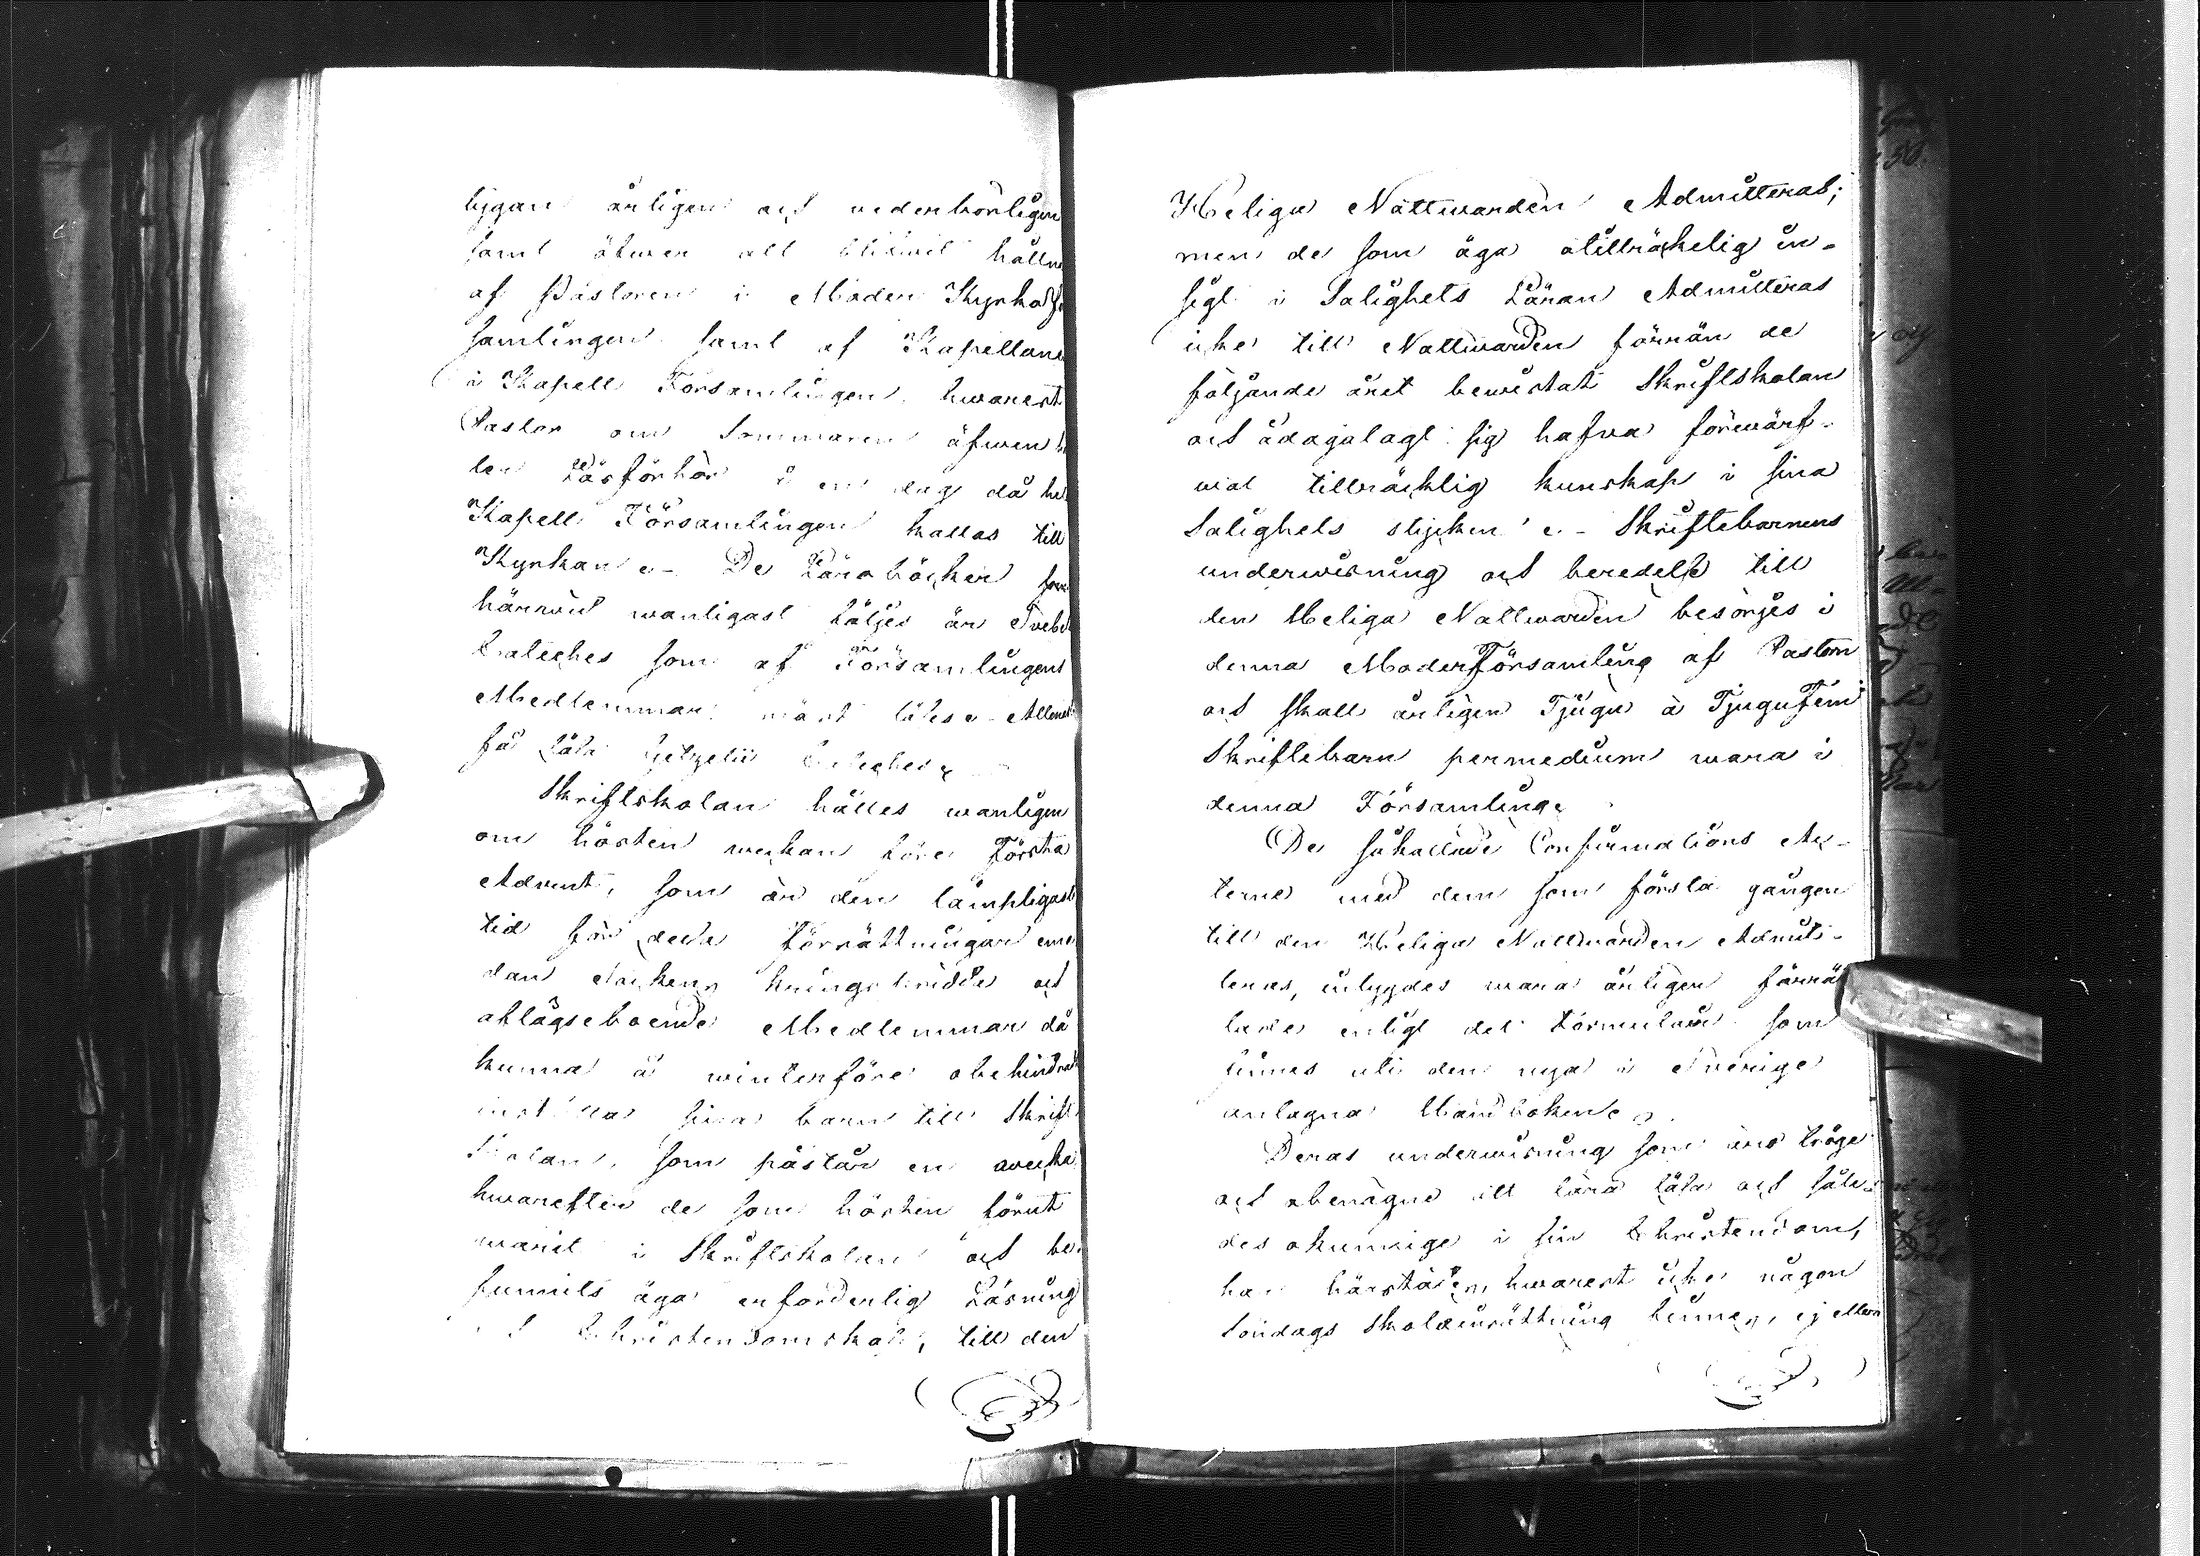 ligan årligen och vederbörligen
samt äfwen allt blifwit hålln
af Pastoren i Moder Kyrko
samlingen samt af Kapellane
i Kapell Församlingen, hwarest
Pastor om Sommaren äfwen
ler Läsförhör å en dag då he
Kapell Församlingen kallas till
Kyrkan. De Läroböcker som
härwid wanligast följes är Svebel
Cateches som af Församlingens
Medlemmar mäst läses. Allenast
få läsa Getzelii Cateches.
Skriftskolan hålles wanligen
om hösten weckan före Första
Advent, som är den lämpligaste
tid för dessa Förrättningar eme
dan Sockens kringspridde och
aflägseboende Medlemmar då
kunna å winterföre obehindrat
inställa sina barn till Skrift
Skolan, som påstår en wecka
hwarefter de som hösten förut
warit i Skriftskolan och be
funnits äga erforderlig Läsning
och Christendomskap, till den
Heliga Nattwarden Admitteras;
men de som äga otillräckelig in-
sigt i Salighets Läran Admitteras
icke till Nattwarden förrän de
följande året bewistat Skriftskolan
och ådagalagt sig hafva förwärf-
wat tillräcklig kunskap i sina
Salighets stycken. Skriftebarnens
underwisning och beredelse till
den Heliga Nattwarden besörjes i
denna ModerFörsamling af Pastorn
och skall årligen Tjugu à TjuguFem
Skriftebarn permedium wara i
denna Församling.
De såkallade Confirmations Ac-
terne med dem som första gången
till den Heliga Nattwarden Admit-
teras, uplyydes wara årligen förrät
tade enligt det Formulair som
finnes uti den nya i Sverige
antagna Handboken.
Deras underwisning som äro tröge
och obenägne att lära läsa och såle-
des okunnige i sin Christendom,
har härstädes, hwarest icke någon
Söndags Skoleinrättning finnes, ej ellera